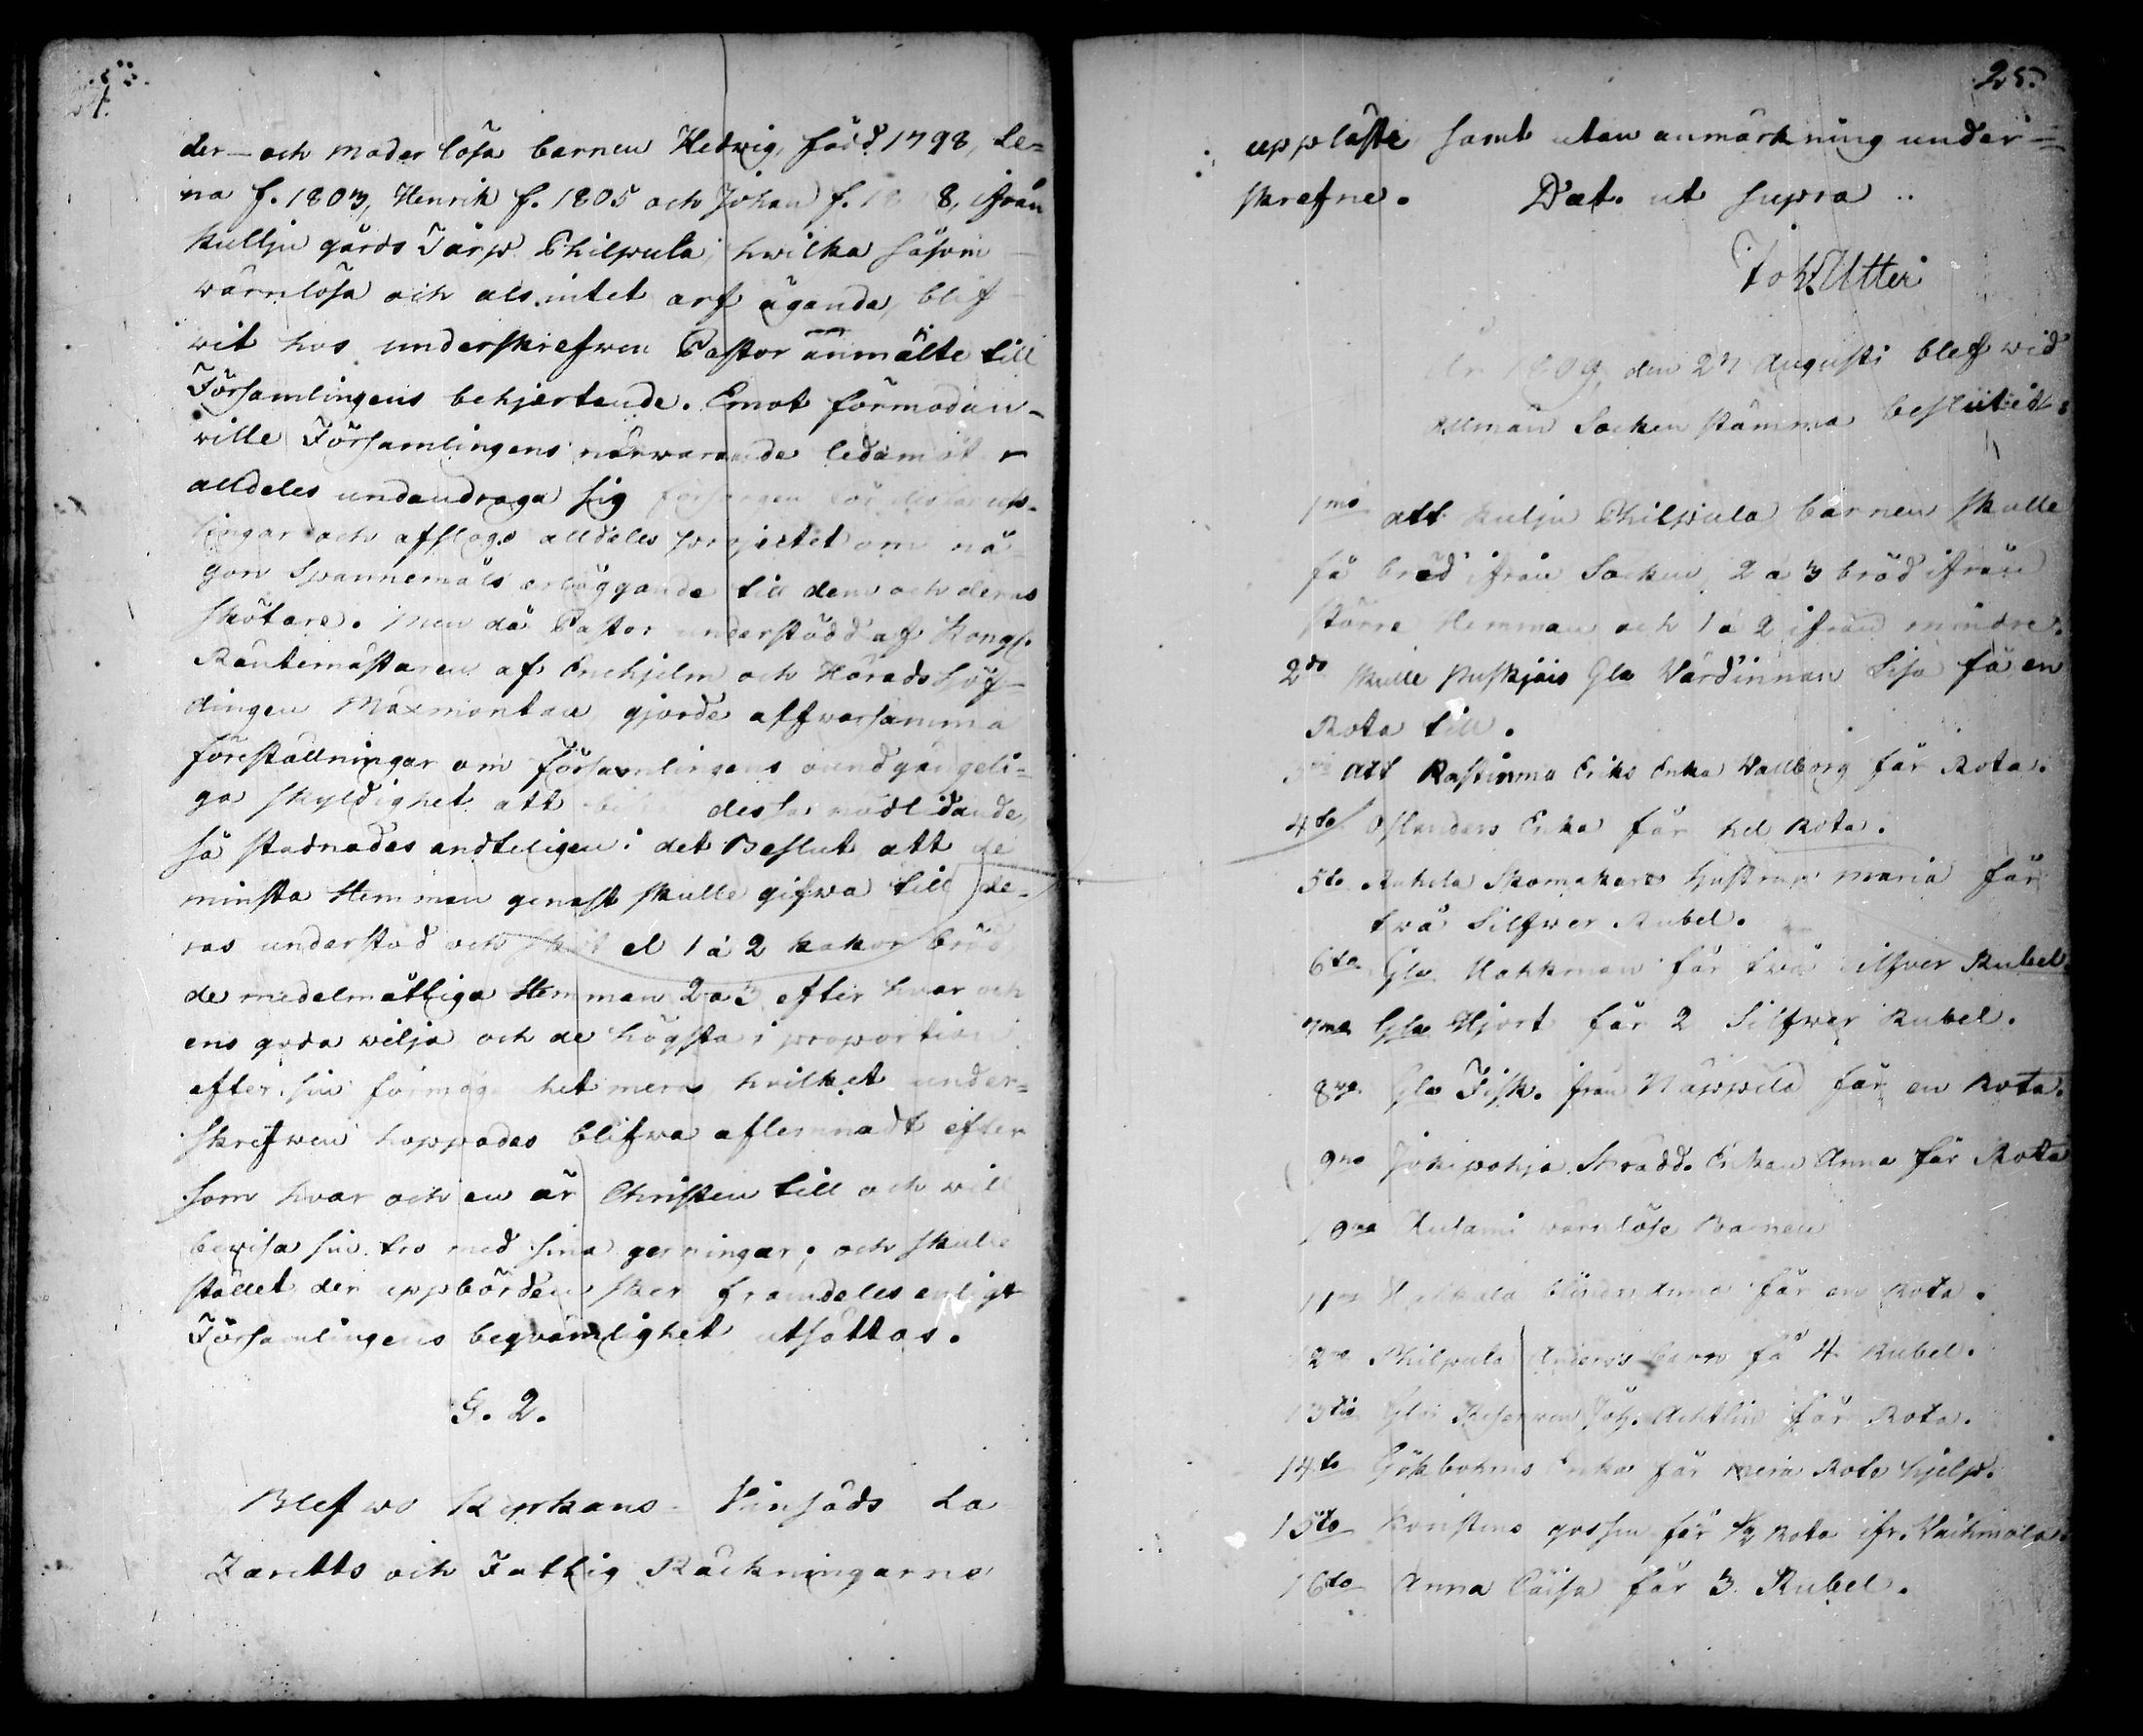 24.
der- och moder lösa barnen Hedwig, född 1798, Le=
na f. 1803, Henrik f. 1805 och Johan f. 18 8, ifrån
Kullju gårds Torp Philpula, hwilka såsom
wärnlösa och als intet arf ägande, blif
wit hos underskrefwen Pastor anmälte till
Församlingens behjertande. Emot förmodan
wille Församlingens närwarande ledamöter
alldeles undandraga sig försorgen för dessa
lingar och afslogo alldeles projectet om nå
gon Spannemåls erläggande till dem och deras
skötare. Men då Pastor understödd af Kongl.
Räntemästaren af Enehjelm och Häradshöf
dingen Maxmontan gjorde allfwarsamma
föreställningar om Församlingens oundgängeli=
ga skyldighet att dessa nödlidande,
så stadnades andteligen i det Beslut att de
minsta Hemman genast skulle gifwa till de=
ras understöd och 1 à 2 kakor bröd
de medelmåttiga Hemman 2 a 3 efter hvar och
ens goda wilja och de högsta i proportion
efter sin förmögenhet mera hvilket under=
skrifwen hoppades blifwa aflemnadt efter
som hvar och en är Christen till och will
bewisa sin tro med sina gerningar; och skulle
stället der uppbörden sker framdeles enligt
Församlingens beqvämlighet utsättas.
§. 2.
Blefwo Kyrkans Vinsäds La
Zaretts och Fattig Räckningarne
25.
uppläste samt utan anmärkning under=
skrefne. Dat. ut supra ..
Joh. Utter
År 1809, den 27 Augusti blef wid
Allmän Socken stämma beslutit:
1mo att Kulju Philpula barnen skulle
få bröd ifrån Socken, 2 a 3 bröd ifrån
större Hemman och 1 à 2 ifrån mindre.
2do skulle Gla Värdinnan Lisa få en
Rota till.
att Eriks Enka Wallborg får Rota.
4to Oslanders Enka får hel Rota.
5to Skomakare hustrun Maria får
två Silfwer Rubel.
6to Gla Hokkman får två Silfver Rubel
7mo Gla Hjort får 2 Silfwer Rubel.
8vo Gla Fisk. från Näppilä får en Rota.
9no Jokipohja Skradd. Enkan Anna får Rota
10mo wärnlösa Barnen
11mo blinda Anna får en Rota.
12mo Philpula Anders barn få 4 Rubel.
13tio Gla Joh. får Rota.
14to Gökbohms Enka får mera Rote hjelp.
15to gossen får 1/2 Rota ifr.
16to Anna Caisa får 3 Rubel.